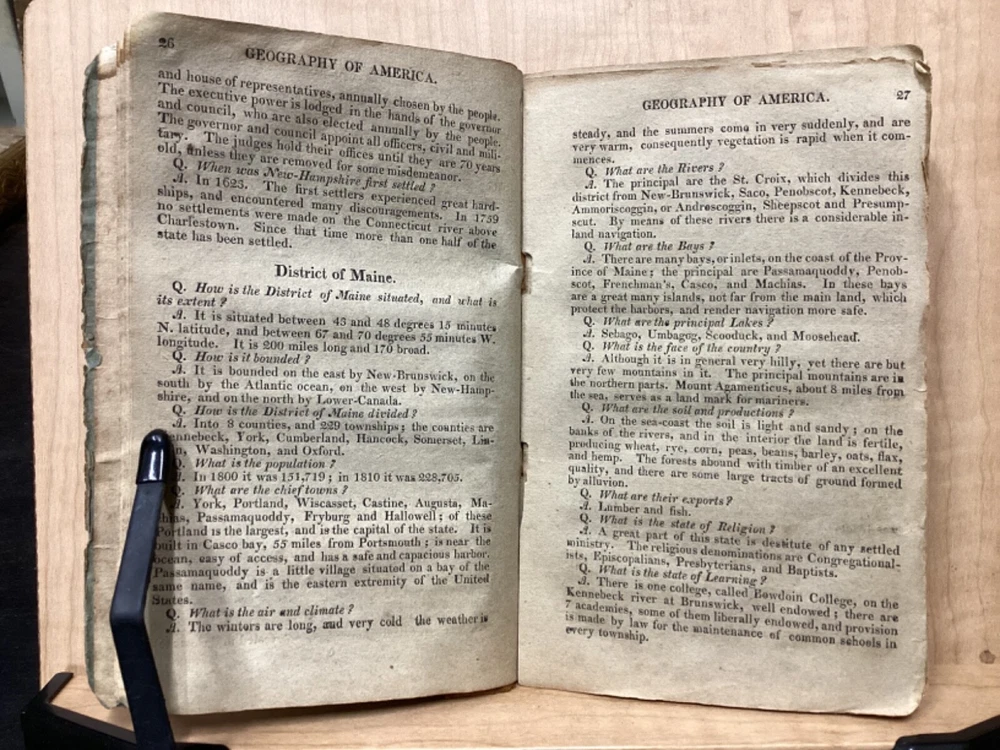 26
GEOGRAPHY OF AMERICA.
and house of representatives, annually chosen by the people.
The executive power is lodged in the hands of the governor
and council, who are also elected annually by the people.
The governor and council appoint all officers, civil and mili-
tary. The judges hold their offices until they are 70 years
old, unless they are removed for some misdemeanor.
Q. When was New-Hampshire first settled?
A. In 1623. The first settlers experienced great hard-
ships, and encountered many discouragements. In 1759
no settlements were made on the Connecticut river above
Charlestown. Since that time more than one half of the
state has been settled.
District of Maine.
Q. How is the District of Maine situated, and what is
its extent?
A. It is situated between 43 and 48 degrees 15 minutes
N. latitude, and between 67 and 70 degrees 55 minutes W.
longitude. It is 200 miles long and 170 broad.
Q. How is it bounded?
A. It is bounded on the east by New-Brunswick, on the
south by the Atlantic ocean, on the west by New-Hamp-
shire, and on the north by Lower-Canada.
Q. How is the District of Maine divided?
A. Into 8 counties, and 229 townships; the counties are
ennebeck, York, Cumberland, Hancock, Somerset, Lin-
n, Washington, and Oxford.
Q. What is the population?
A. In 1800 it was 151,719; in 1810 it was 228,705.
Q. What are the chief towns?
A. York, Portland, Wiscasset, Castine, Augusta, Ma-
chias, Passamaquoddy, Fryburg and Hallowell; of these
Portland is the largest, and is the capital of the state. It is
built in Casco bay, 55 miles from Portsmouth; is near the
ocean, easy of access, and has a safe and capacious harbor.
Passamaquoddy is a little village situated on a bay of the
same name, and is the eastern extremity of the United
States.
Q. What is the air and climate?
A. The winters are long, and very cold the weather is
GEOGRAPHY OF AMERICA.
27
steady, and the summers come in very suddenly, and are
very warm, consequently vegetation is rapid when it com-
mences.
Q. What are the Rivers?
A. The principal are the St. Croix, which divides this
district from New-Brunswick, Saco, Penobscot, Kennebeck,
Ammoriscoggin, or Androscoggin, Sheepscot and Presump-
scut. By means of these rivers there is a considerable in-
land navigation.
Q. What are the Bays?
A. There are many bays, or inlets, on the coast of the Prov-
ince of Maine; the principal are Passamaquoddy, Penob-
scot, Frenchman's, Casco, and Machias. In these bays
are a great many islands, not far from the main land, which
protect the harbors, and render navigation more safe.
Q. What are the principal Lakes?
A. Sebago, Umbagog, Scooduck, and Moosehead.
Q. What is the face of the country?
A. Although it is in general very hilly, yet there are but
very few mountains in it. The principal mountains are in
the northern parts. Mount Agamenticus, about 8 miles from
the sea, serves as a land mark for mariners.
Q. What are the soil and productions?
A. On the sea-coast the soil is light and sandy; on the
banks of the rivers, and in the interior the land is fertile,
producing wheat, rye, corn, peas, beans, barley, oats, flax,
and hemp. The forests abound with timber of an excellent
quality, and there are some large tracts of ground formed
by alluvion.
Q. What are their exports?
A. Lumber and fish.
Q. What is the state of Religion?
A. A great part of this state is destitute of any settled
ministry. The religious denominations are Congregational-
ists, Episcopalians, Presbyterians, and Baptists.
Q. What is the state of Learning?
A. There is one college, called Bowdoin College, on the
Kennebeck river at Brunswick, well endowed; there are
7 academies, some of them liberally endowed, and provision
is made by law for the maintenance of common schools in
every township.